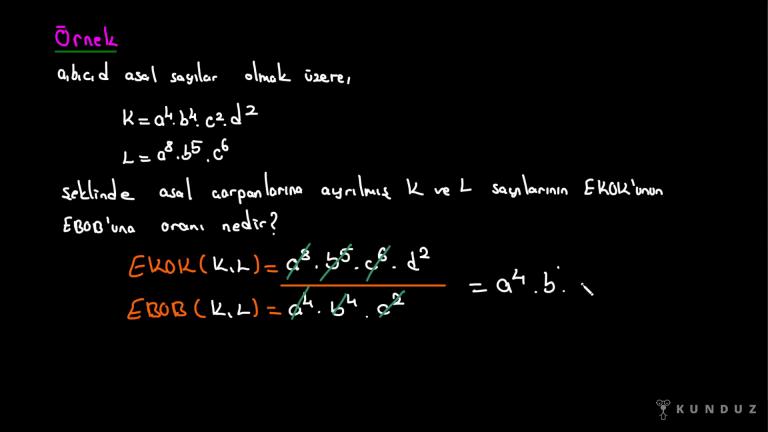 Örnek
a,b,c,d asal sayılar olmak üzere,
K = a⁴.b⁴.c².d²
L = a⁸.b⁵.c⁶
şeklinde asal çarpanlarına ayrılmış K ve L sayılarının EKOK'unun
EBOB'una oranı nedir?
EKOK(K,L) = a⁸.b⁵.c⁶.d²
EBOB(K,L) = a⁴.b⁴.c²
= a⁴.b.
KUNDUZ